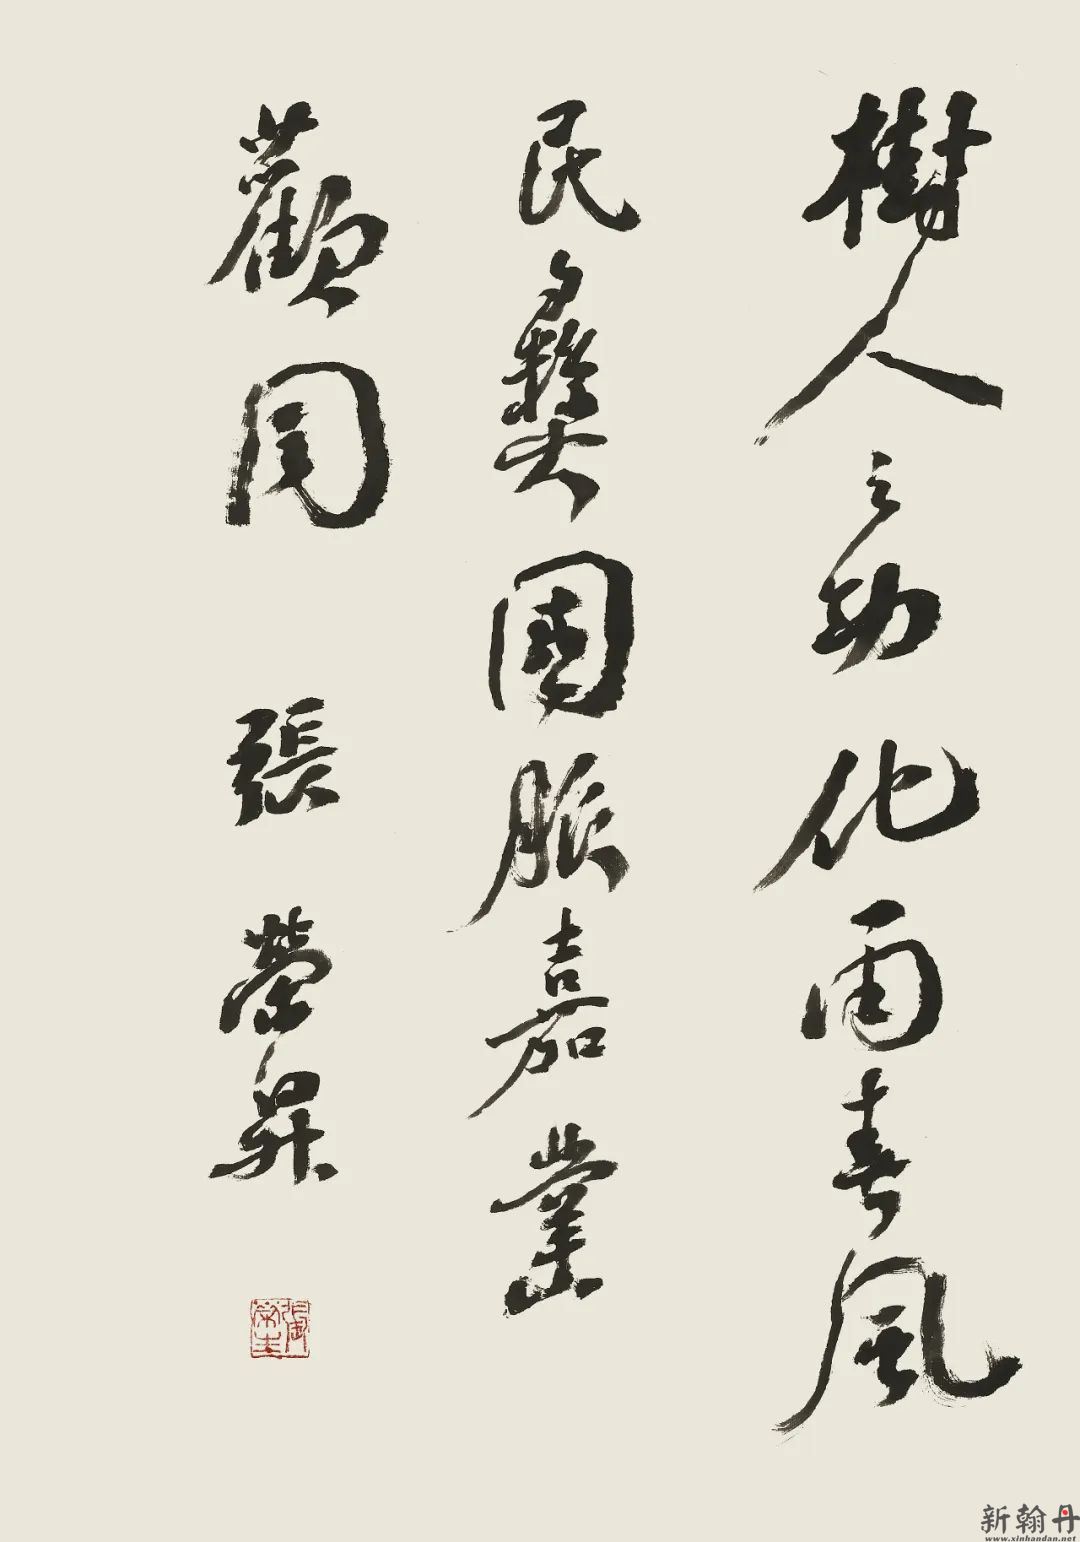 樹人之功化雨春風
民彝國脈嘉業
觀同 張榮昇
新翰丹
www.xinhandan.net